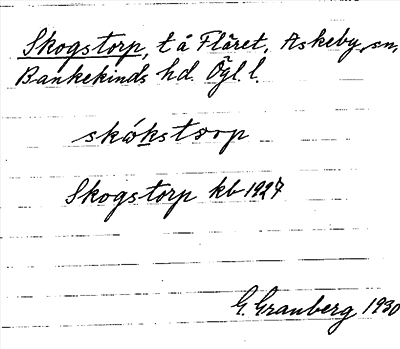 Skogstorp, t å Flåret, Askeby sn,
Bankekinds hd. Ögl. l.
skokstorp
Skogstorp kb 1927
G. Granberg 1930